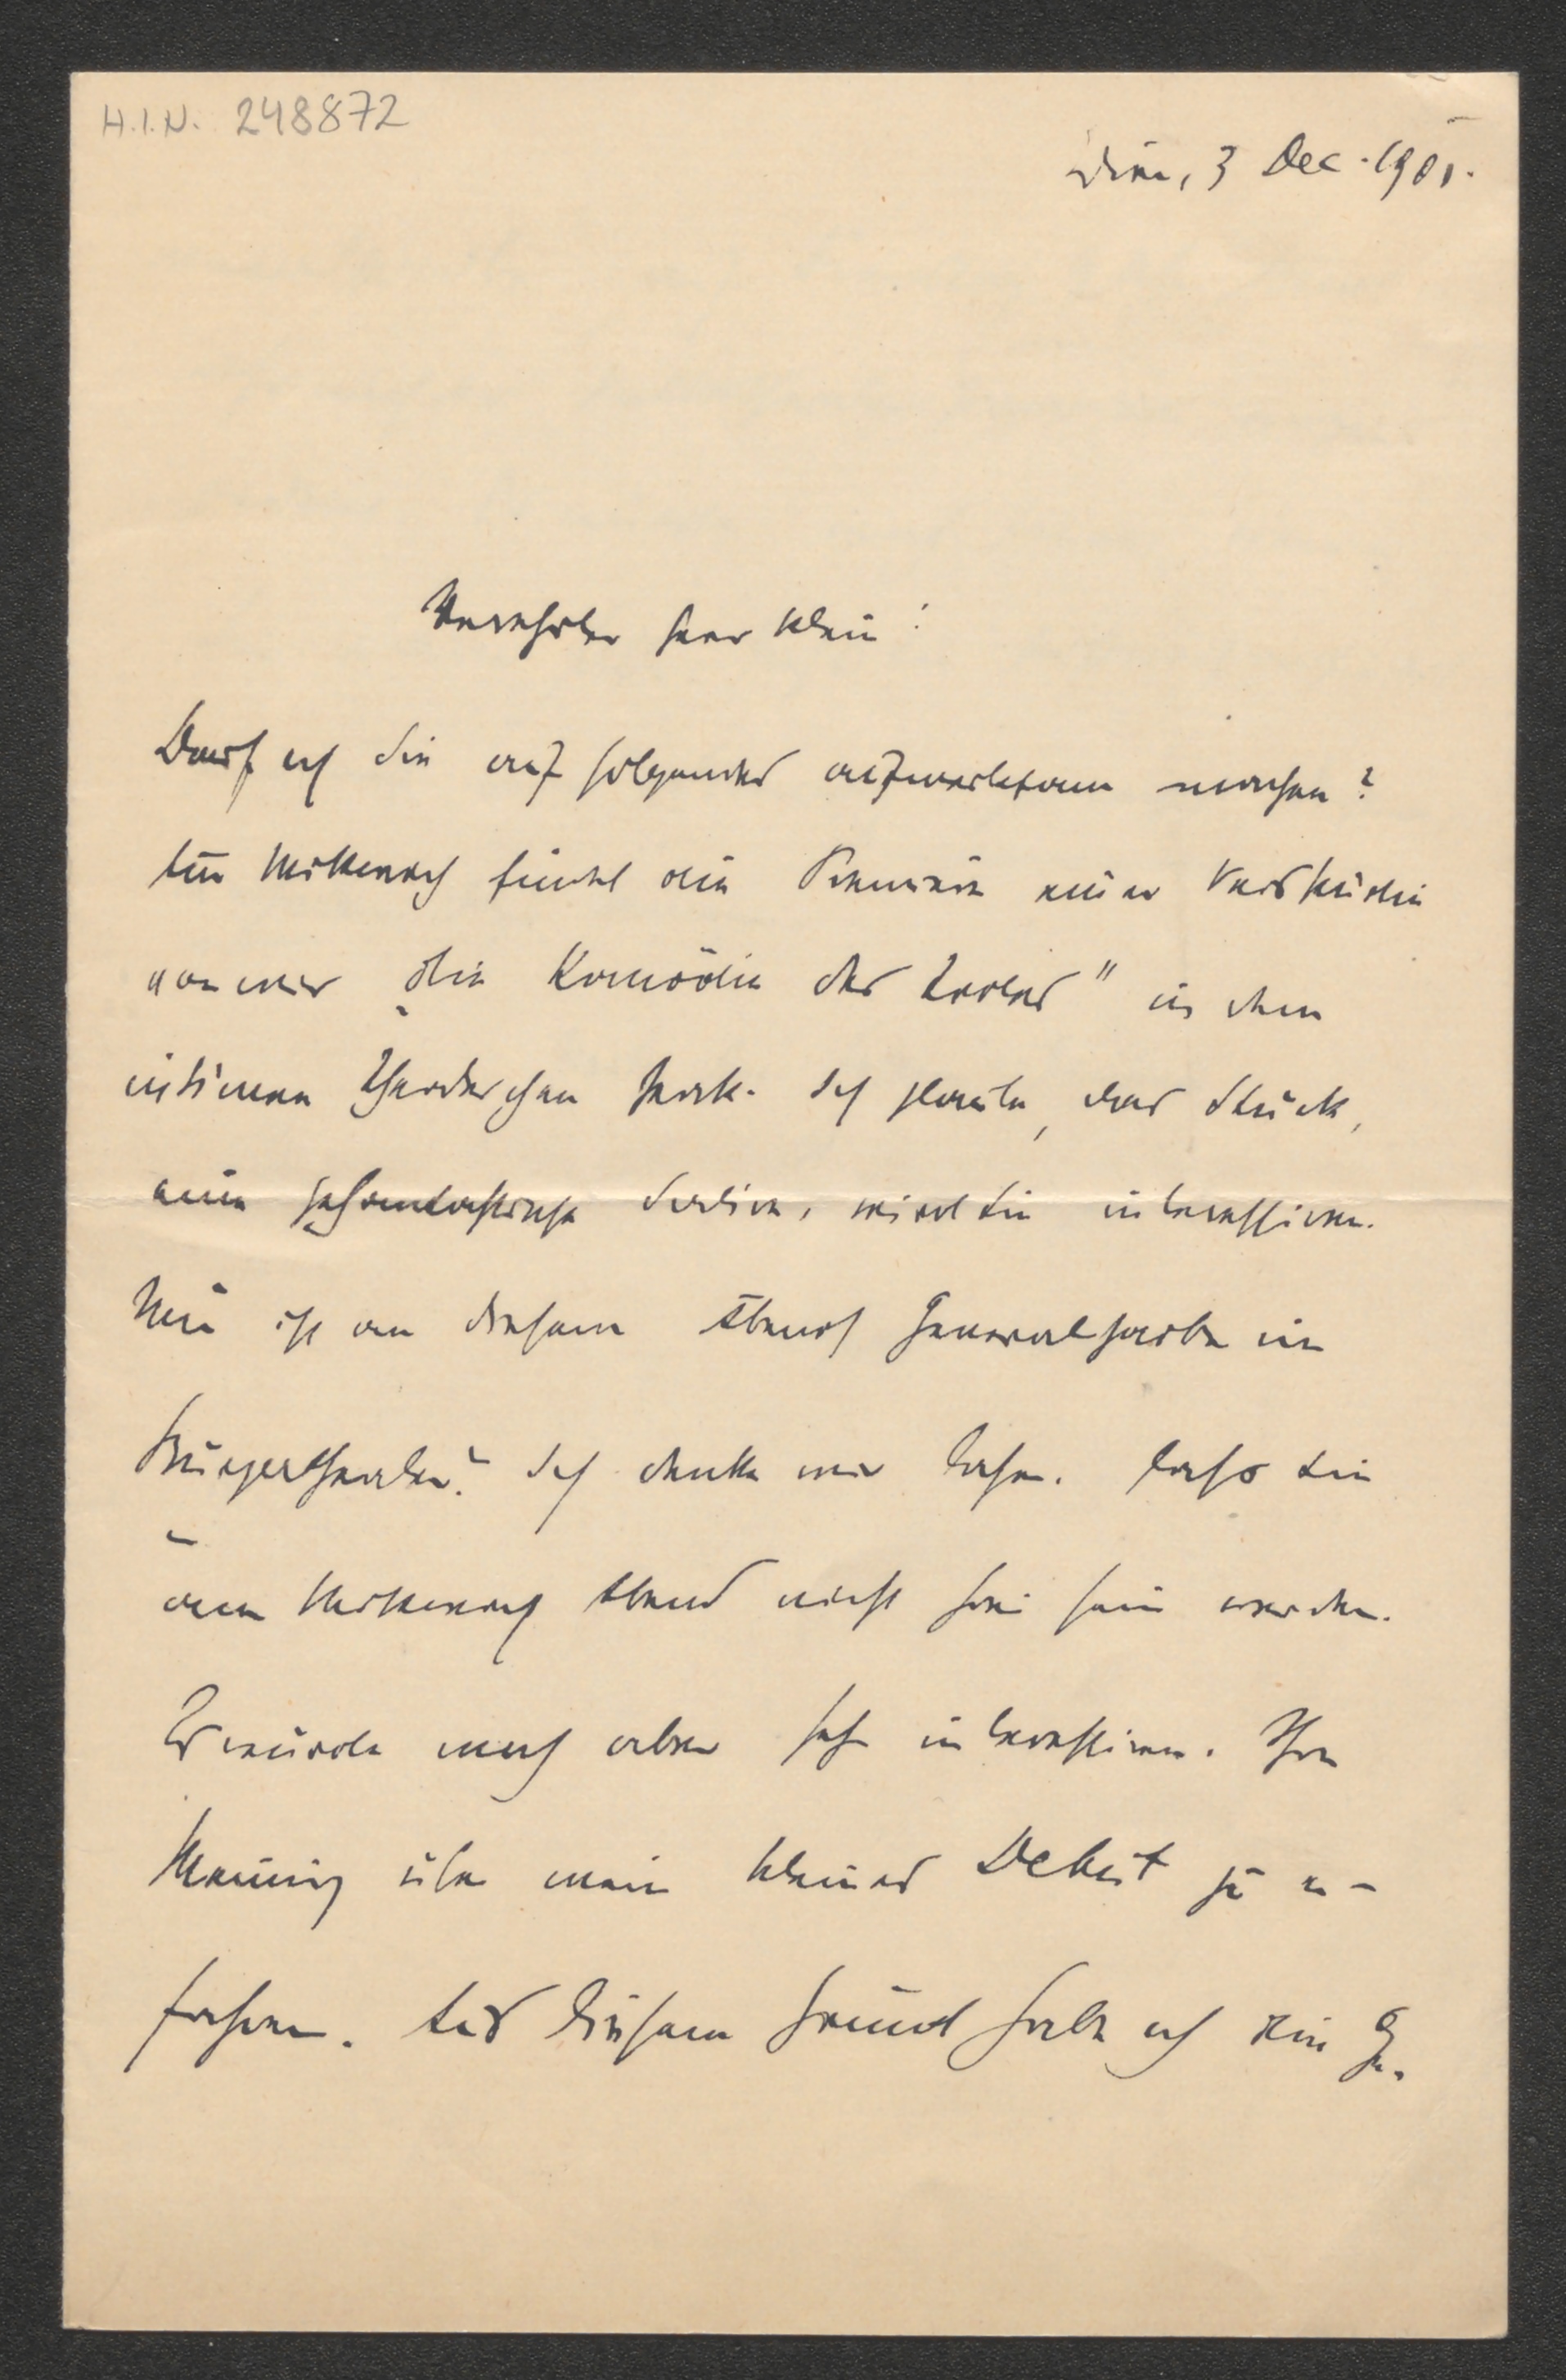 H.I.N. 248872
Wien, 3 Dec. 1901.
Verehrter Herr Klein!
Darf ich Sie auf folgendes aufmerksam machen?
Am Mittwoch findet die Première eines
von mir „Die Komödie des Todes" in dem
intimen Theaterchen statt. Ich glaube, das Stück,
eine phantastische Satire, wird Sie interessieren.
Nun ist an diesem Abend Generalprobe im
Bürgertheater. Ich denke mir daher, dass Sie
am Mittwoch Abend nicht frei sein werden.
Es würde mich aber sehr interessieren, Ihre
Meinung über mein kleines Debut zu er-
fahren. Aus diesem Grund habe ich die